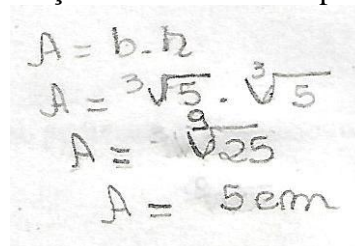 A = b.h
A = ³√5 . ³√5
A = ⁹√25
A = 5cm